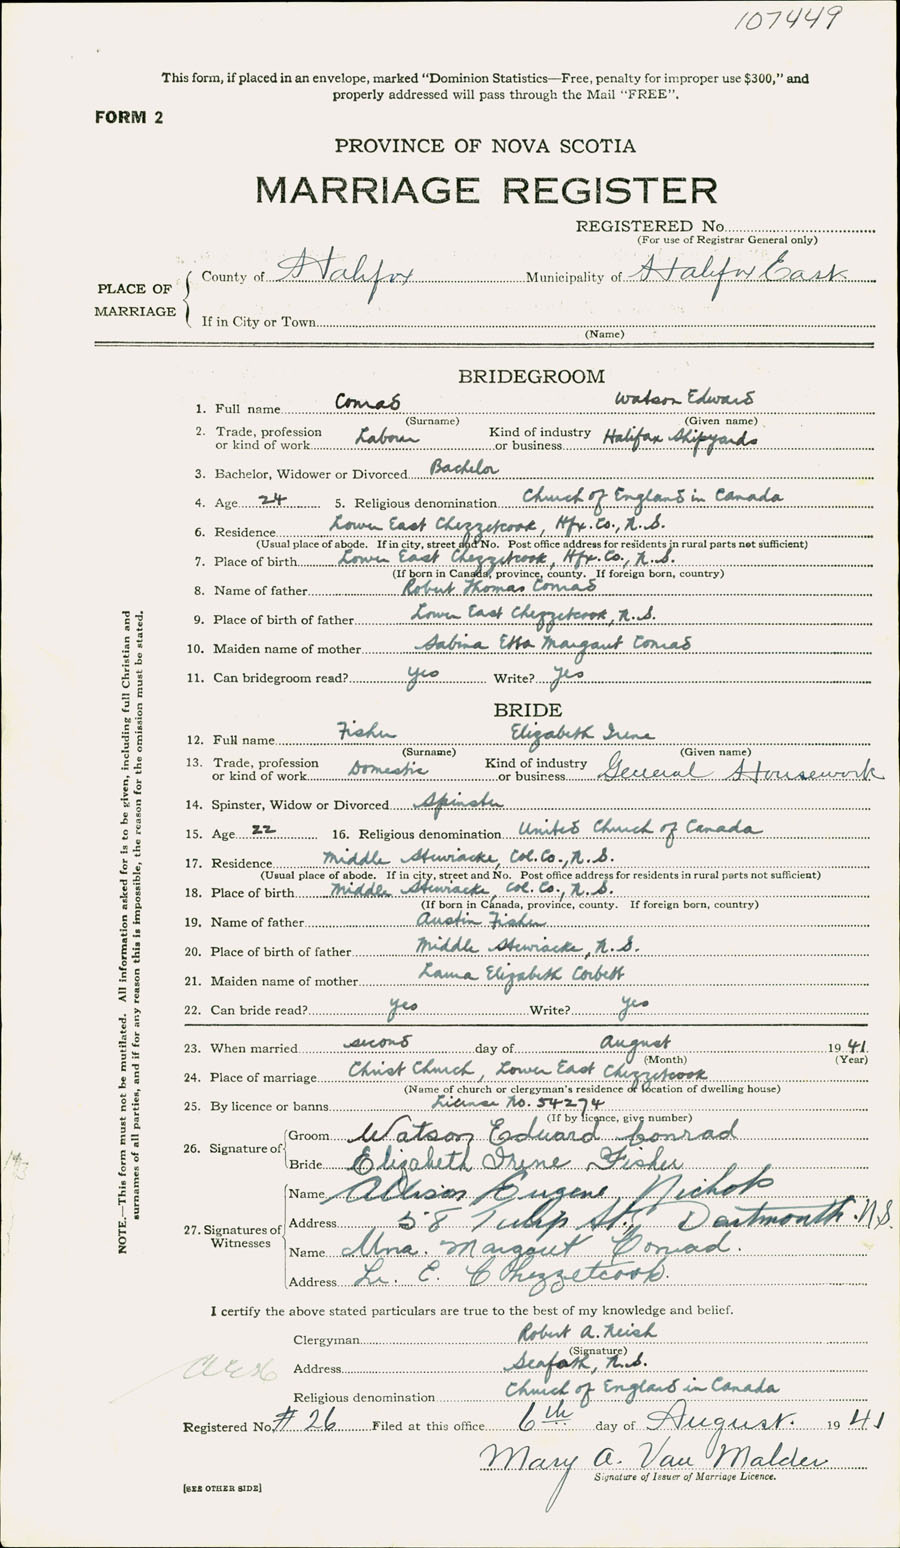 107449
This form, if placed in an envelope, marked "Dominion Statistics—Free, penalty for improper use $300," and
properly addressed will pass through the Mail "FREE".
FORM 2
PROVINCE OF NOVA SCOTIA
MARRIAGE REGISTER
REGISTERED No.
(For use of Registrar General only)
PLACE OF MARRIAGE
County of Halifax Municipality of Halifax East
If in City or Town
(Name)
BRIDEGROOM
1. Full name Conrad Watson Edward
(Surname) (Given name)
2. Trade, profession or kind of work Labour Kind of industry or business Halifax Shipyards
3. Bachelor, Widower or Divorced Bachelor
4. Age 24 5. Religious denomination Church of England in Canada
6. Residence Lower East Chezzetcook, Hfx. Co., N.S.
(Usual place of abode. If in city, street and No. Post office address for residents in rural parts not sufficient)
7. Place of birth Lower East Chezzetcook, Hfx. Co., N.S.
(If born in Canada, province, county. If foreign born, country)
8. Name of father Robert Thomas Conrad
9. Place of birth of father Lower East Chezzetcook, N.S.
10. Maiden name of mother Sabina Etta Margaret Conrad
11. Can bridegroom read? Yes Write? Yes
BRIDE
12. Full name Fisher Elizabeth Irene
(Surname) (Given name)
13. Trade, profession or kind of work Domestic Kind of industry or business General Housework
14. Spinster, Widow or Divorced Spinster
15. Age 22 16. Religious denomination United Church of Canada
17. Residence Middle Stewiacke, Col. Co., N.S.
(Usual place of abode. If in city, street and No. Post office address for residents in rural parts not sufficient)
18. Place of birth Middle Stewiacke, Col. Co., N.S.
(If born in Canada, province, county. If foreign born, country)
19. Name of father Austin Fisher
20. Place of birth of father Middle Stewiacke, N.S.
21. Maiden name of mother Laura Elizabeth Corbett
22. Can bride read? Yes Write? Yes
23. When married second day of August 1941
(Month) (Year)
24. Place of marriage Christ Church, Lower East Chezzetcook
(Name of church or clergyman's residence or location of dwelling house)
25. By licence or banns License No. 54274
(If by licence, give number)
26. Signature of Groom Watson Edward Conrad
Bride Elizabeth Irene Fisher
27. Signatures of Witnesses
Name Allison Eugene Nichols
Address 58 Tulip St., Dartmouth. N.S.
Name Una. Margaret Conrad.
Address Lr. E. Chezzetcook.
I certify the above stated particulars are true to the best of my knowledge and belief.
Clergyman Robert A. Neish
(Signature)
Address Seaforth, N.S.
Religious denomination Church of England in Canada
Registered No. #26 Filed at this office 6th day of August. 1941
Mary A. Van Malder
Signature of Issuer of Marriage Licence.
[SEE OTHER SIDE]
NOTE.—This form must not be mutilated. All information asked for is to be given, including full Christian and
surnames of all parties, and if for any reason this is impossible, the reason for the omission must be stated.